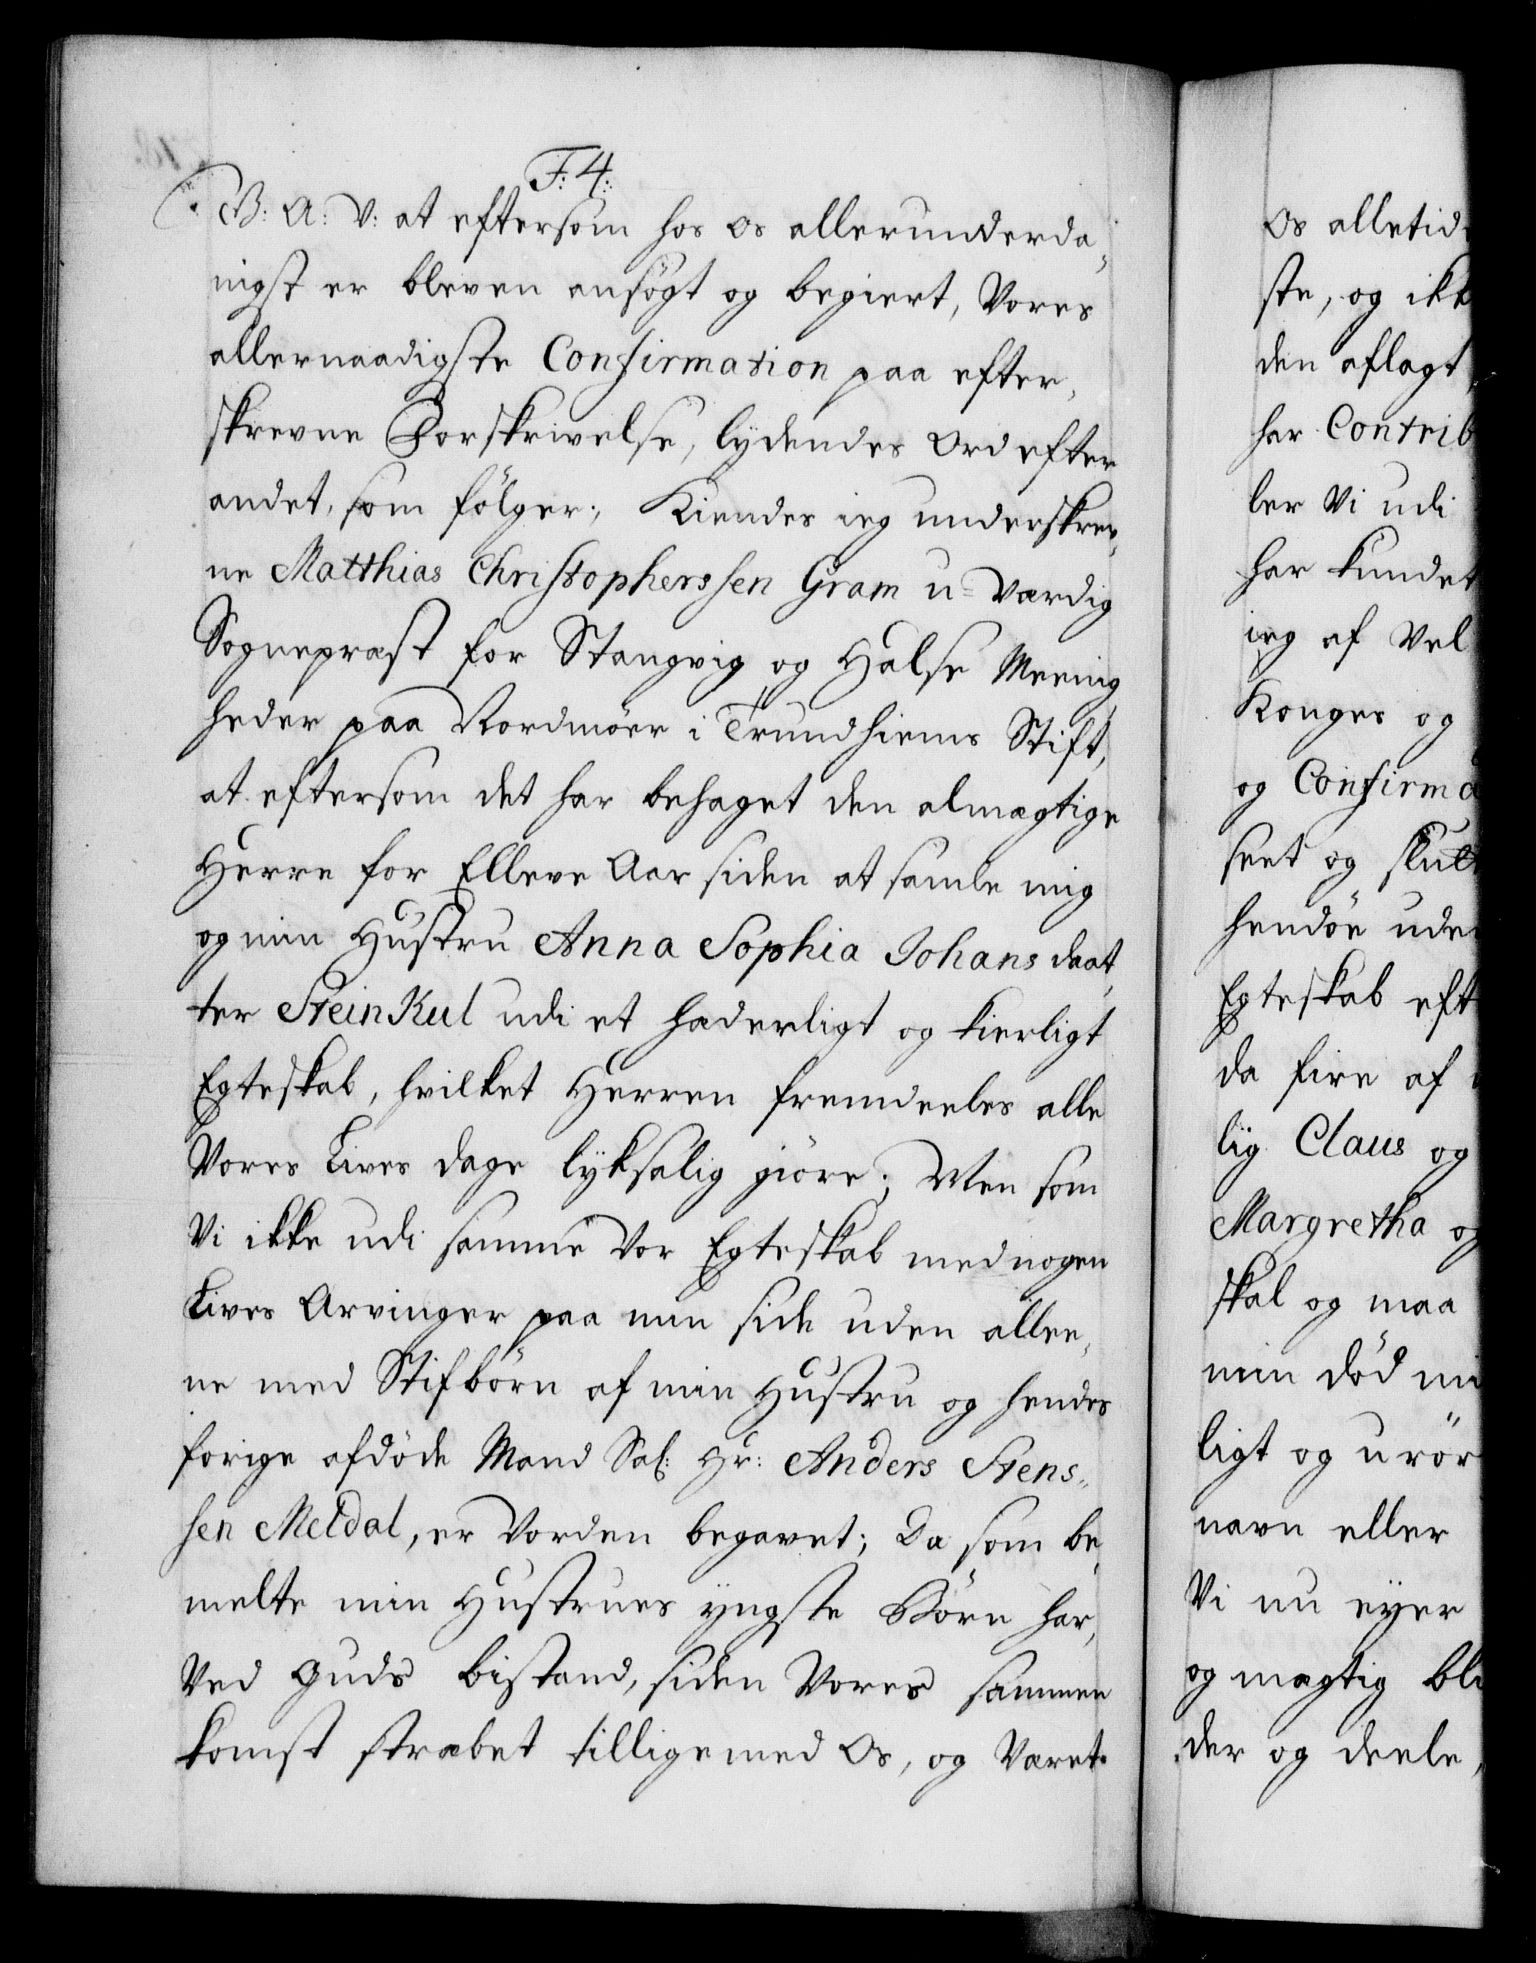 F: 4:
G: A: V: at eftersom hos os allerunderda„
nigst er bleven ansøgt og begiert, Vores
allernaadigste Confirmation paa efter„
skrevne Forskrivelse, lydendes Ord efter
andet, som følger; Kiendes ieg underskrev„
ne Matthias Christopherssen Gram u=Værdig
Sognepræst for Stangvig og Halse Meenig„
heder paa Nordmöer i Trundhiems Stift,
at eftersom det har behaget den almægtige
Herre for Elleve Aar siden at samle mig
og min Hustru Anna Sophia Johans daat„
ter SteinKul udi et hæderligt og kierligt
Egteskab, hvilket Herren fremdeeles alle
Vores Lives dage lyksalig giöre; Men som
Vi ikke udi samme Vor Egteskab med nogen
Lives Arvinger paa min side uden allee„
ne med Stifbörn af min Hustru og hendes
forige afdöde Mand Sal: Hr: Anders Stens„
sen Meldal, er Vorden begavet; Da som be„
melte min Hustrues yngste Börn har,
Ved Guds bistand, siden Vores sammen
komst stræbet tilligemed Os, og Været
Os alletid
ste, og ikk
den aflagt
har Contrib
ler Vi udi
har kundet
ieg af Vel
Konges og
og Confirma
seet og slut
hendöe uden
Egteskab eft
da fire af
lig Claus og
Margretha og
skal og maa
min död mi
ligt og urör
navn eller
Vi nu eyer
og mægtig bli
der og deele,